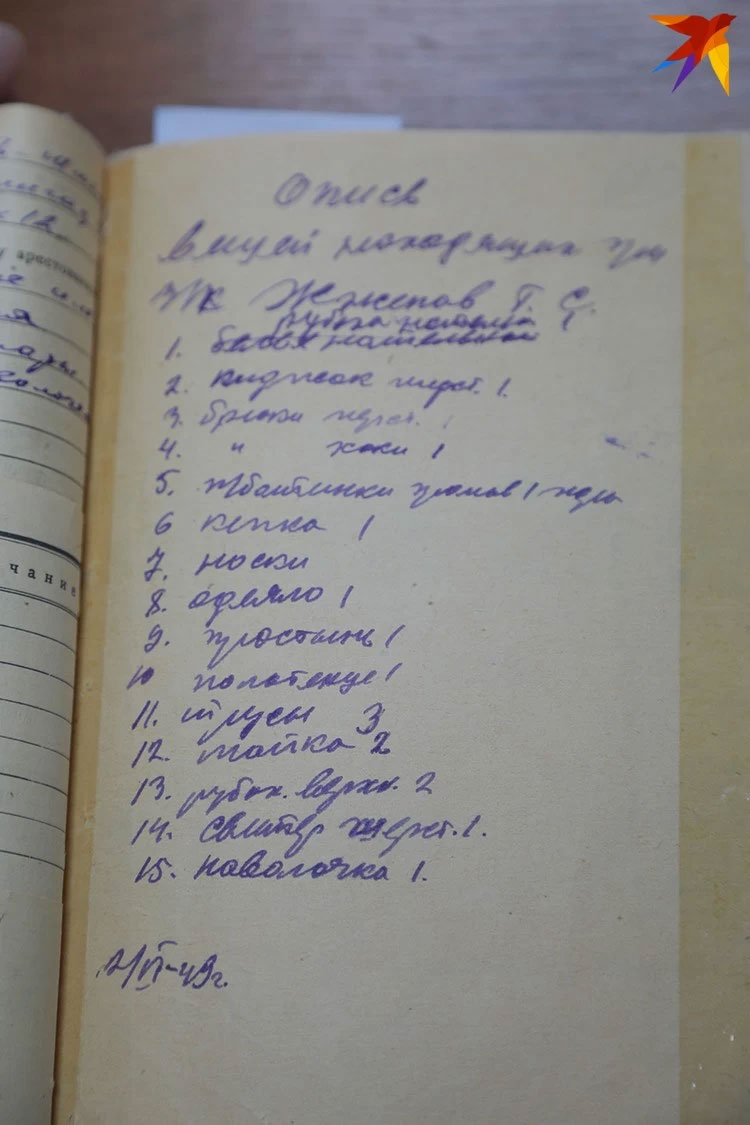 Опись
вещей находящих при
з/к Жженов Г. С.
рубка нательная 1
1. белья нательной
2. пиджак шерст. 1.
3. брюки шерст. 1
4. " хаки 1
5. ботинки хромов 1 пара
6 кепка 1
7. носки
8. одеяло 1
9. простынь 1
10 полотенце 1
11. трусы 3
12. майка 2
13. рубах. верхн. 2
14. свитер шерст. 1.
15. наволочка 1.
2/VI-49г.
арестован
чание